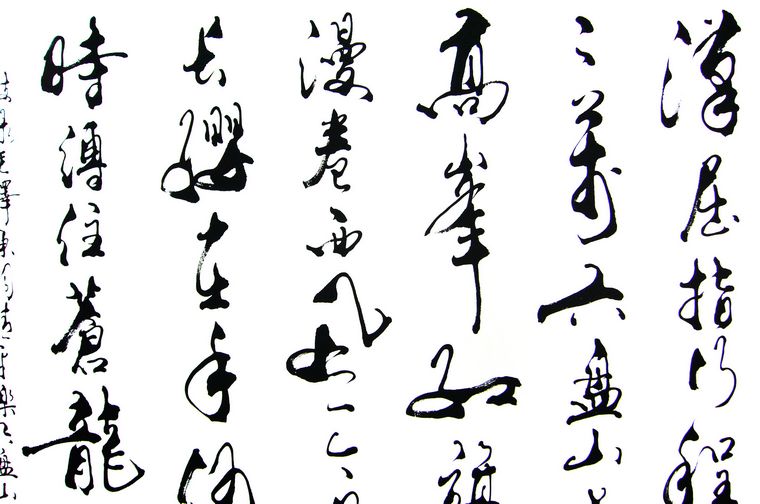 漢屈指行程
二萬六盤山
高峯紅旗
漫卷西风今日
長纓在手何
時縛住蒼龍
毛澤東詞清平樂六盤山